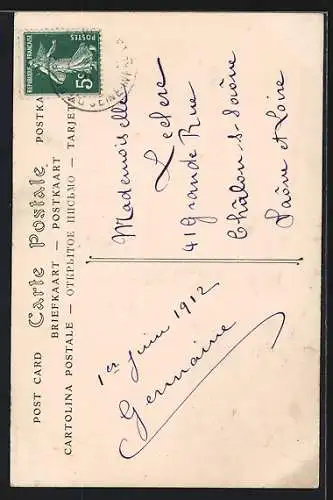 POST CARD Carte Postale POSTKA
BRIEFKAART — POSTKAART
CARTOLINA POSTALE — ОТКРЫТОЕ ПИСЬМО — TARJET
REPUBLIQUE FRANÇAISE
POSTES
5c
1er Juin 1912
Germaine
Mademoiselle
Leclerc
41 Grande Rue
Châlon s- Saône
Saône et Loire